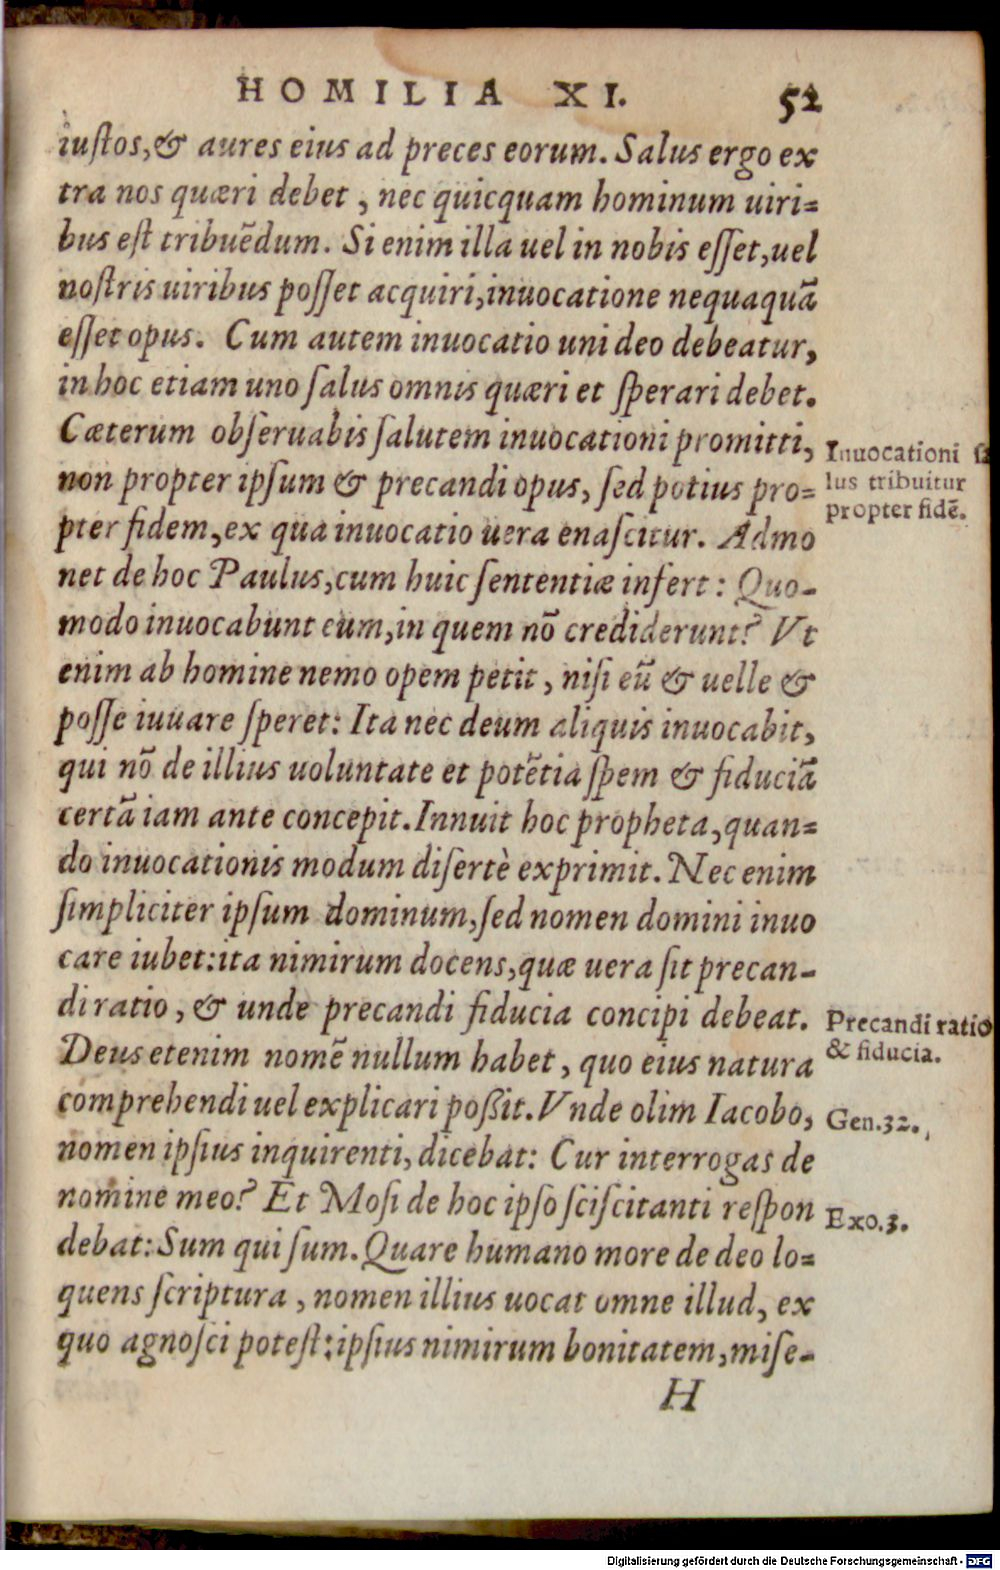 HOMILIA XI. 52
iustos, & aures eius ad preces eorum. Salus ergo ex
tra nos quæri debet, nec quicquam hominum uiri=
bus est tribuēdum. Si enim illa uel in nobis esset, uel
nostris uiribus posset acquiri, inuocatione nequaquā
esset opus. Cum autem inuocatio uni deo debeatur,
in hoc etiam uno salus omnis quæri et sperari debet.
Cæterum obseruabis salutem inuocationi promitti,
non propter ipsum & precandi opus, sed potius pro=
pter fidem, ex qua inuocatio uera enascitur. Admo
net de hoc Paulus, cum huic sententiæ infert: Quo-
modo inuocabunt eum, in quem nō crediderunt? Vt
enim ab homine nemo opem petit, nisi eū & uelle &
posse iuuare speret: Ita nec deum aliquis inuocabit,
qui nō de illius uoluntate et potētia spem & fiduciā
certā iam ante concepit. Innuit hoc propheta, quan=
do inuocationis modum disertè exprimit. Nec enim
simpliciter ipsum dominum, sed nomen domini inuo
care iubet: ita nimirum docens, quæ uera sit precan-
di ratio, & unde precandi fiducia concipi debeat.
Deus etenim nomē nullum habet, quo eius natura
comprehendi uel explicari poßit. Vnde olim Iacobo,
nomen ipsius inquirenti, dicebat: Cur interrogas de
nomine meo? Et Mosi de hoc ipso sciscitanti respon
debat: Sum qui sum. Quare humano more de deo lo=
quens scriptura, nomen illius uocat omne illud, ex
quo agnosci potest: ipsius nimirum bonitatem, mise-
H
Inuocationi sa
lus tribuitur
propter fidē.
Precandi ratio
& fiducia.
Gen.32.
Exo.3.
Digitalisierung gefördert durch die Deutsche Forschungsgemeinschaft - DFG